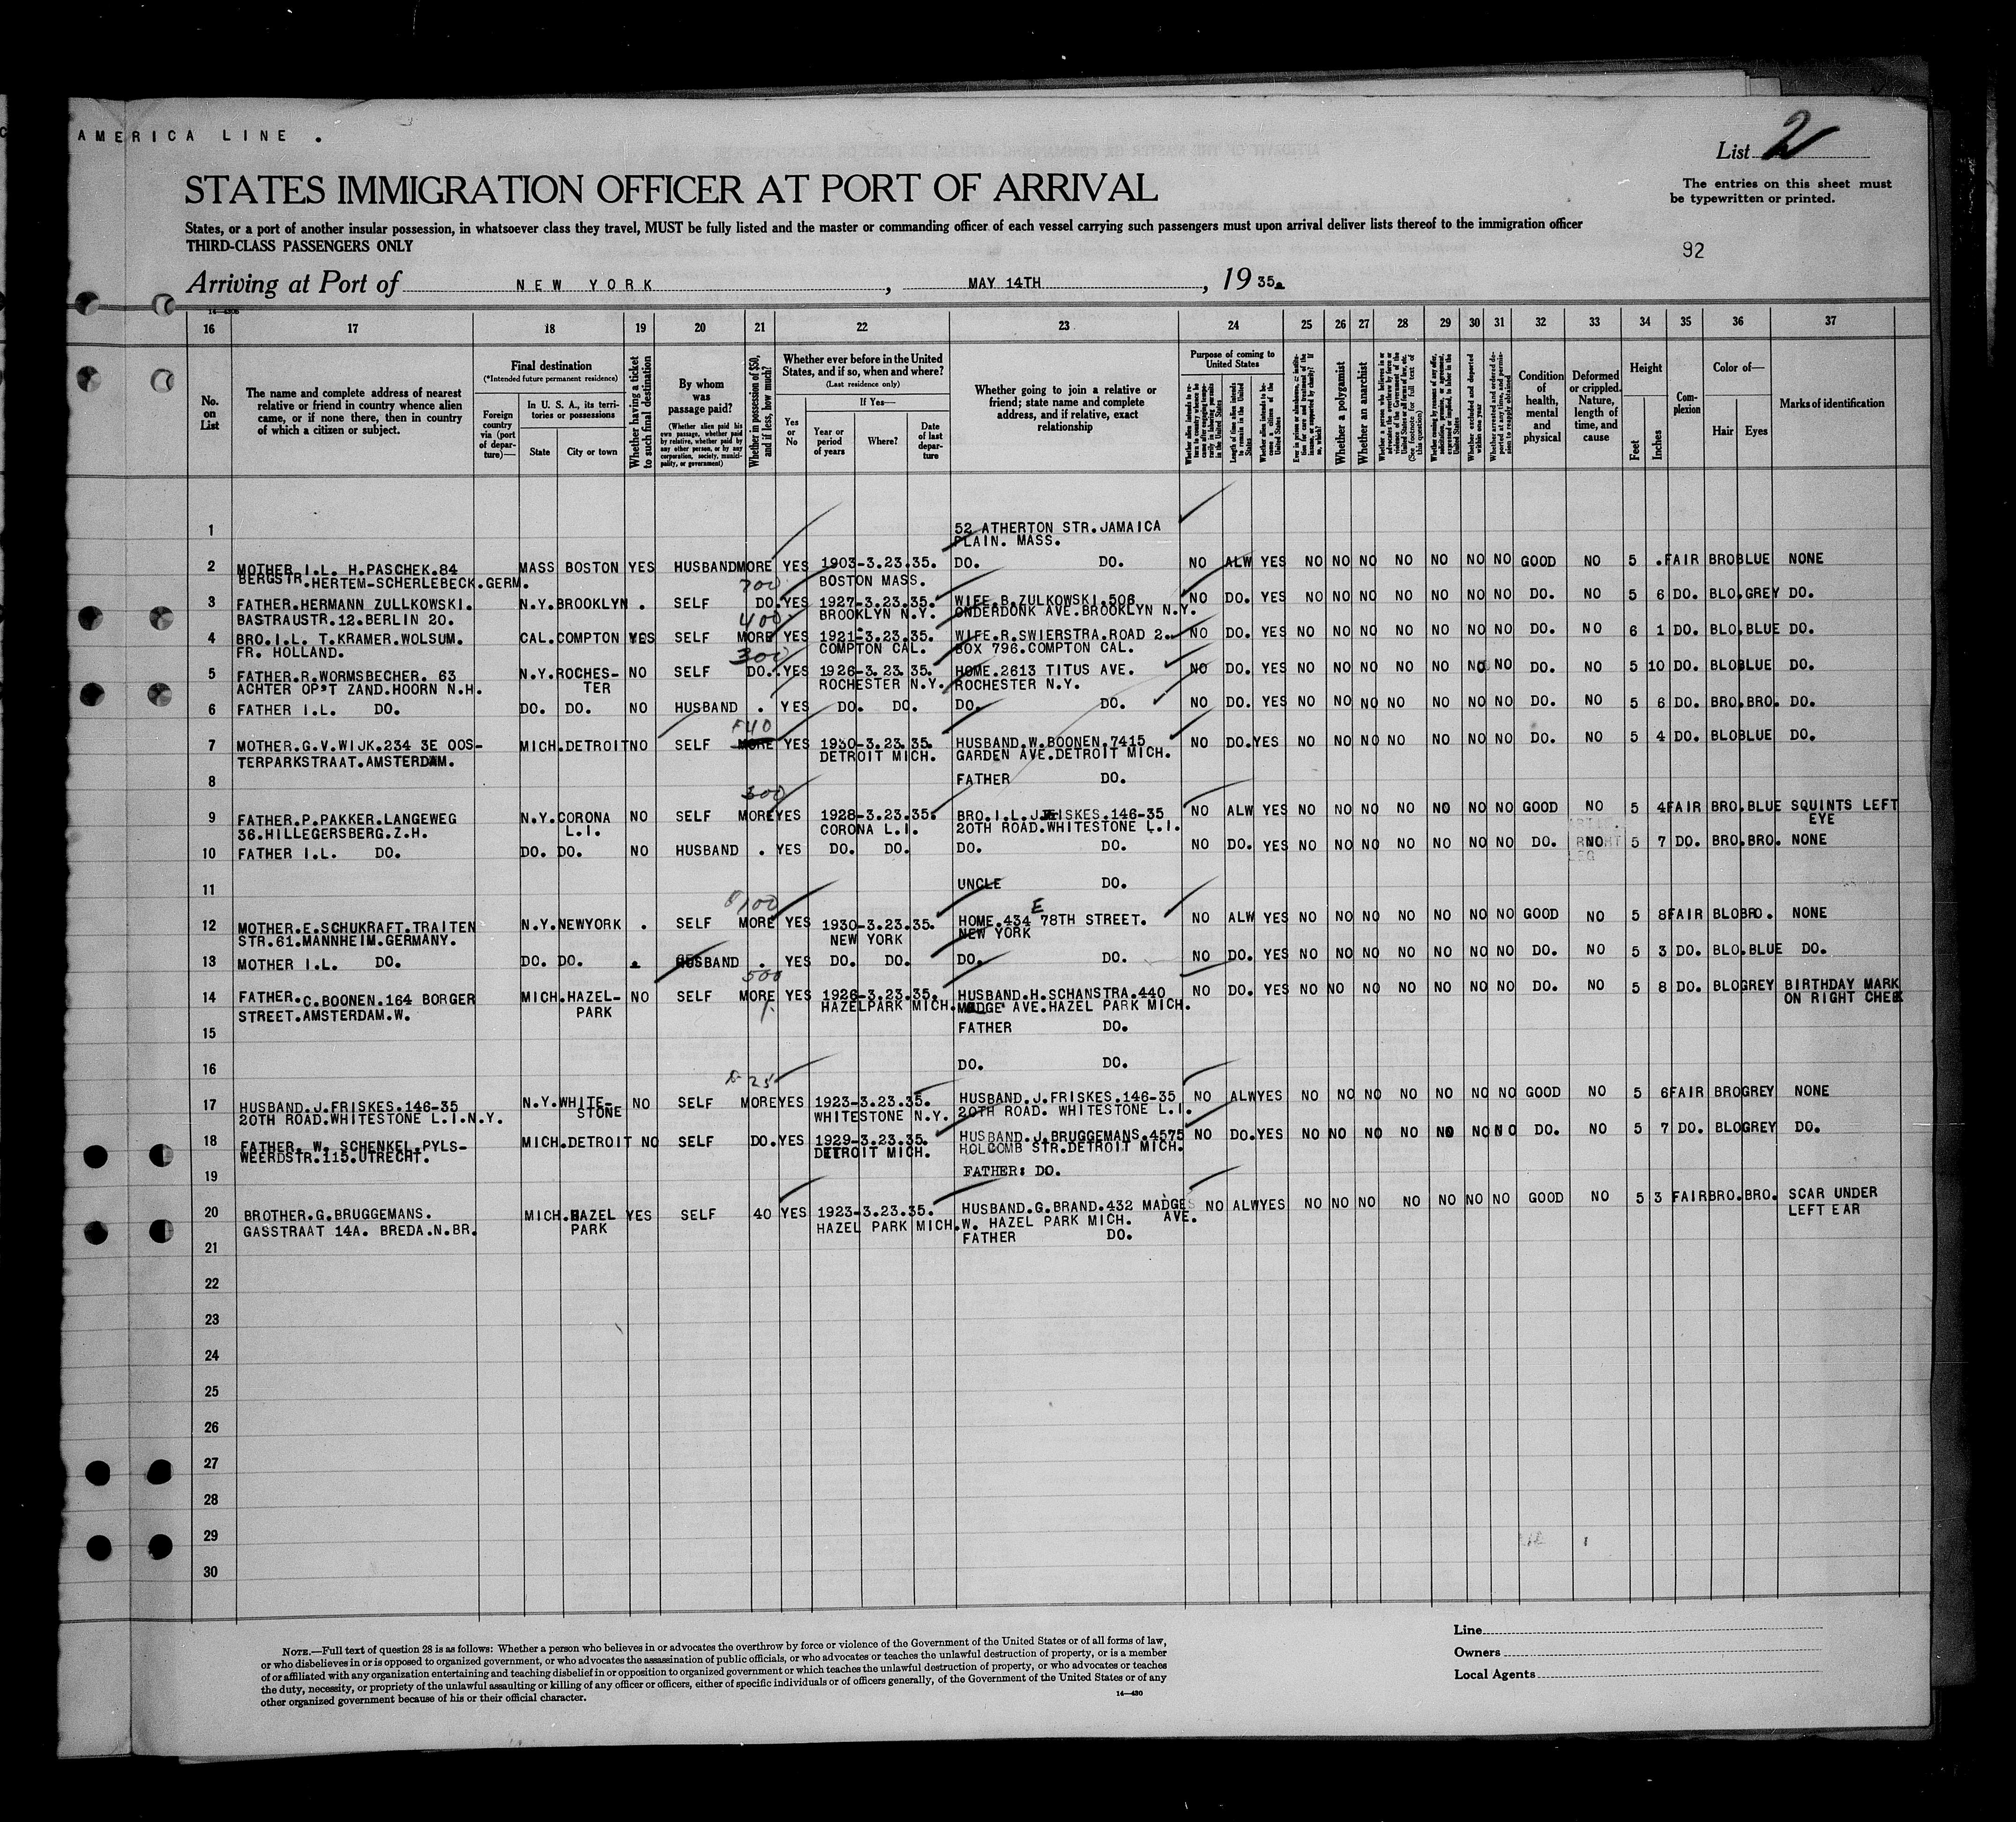 AMERICA LINE .
List 2
STATES IMMIGRATION OFFICER AT PORT OF ARRIVAL
The entries on this sheet must
be typewritten or printed.
States, or a port of another insular possession, in whatsoever class they travel, MUST be fully listed and the master or commanding officer of each vessel carrying such passengers must upon arrival deliver lists thereof to the immigration officer
THIRD-CLASS PASSENGERS ONLY
92
Arriving at Port of NEW YORK , MAY 14TH , 19 35.
16 17 18 19 20 21 22 23 24 25 26 27 28 29 30 31 32 33 34 35 36 37
No. on List
The name and complete address of nearest relative or friend in country whence alien came, or if none there, then in country of which a citizen or subject.
Final destination
(*Intended future permanent residence)
Foreign country via (port of departure)—
In U. S. A., its territories or possessions
State City or town
Whether having a ticket to such final destination
By whom was passage paid?
(Whether alien paid his own passage, whether paid by relative, whether paid by any other person, or by any corporation, society, municipality, or government)
Whether in possession of $50, and if less, how much?
Whether ever before in the United States, and if so, when and where?
(Last residence only)
If Yes—
Yes or No
Year or period of years
Where?
Date of last departure
Whether going to join a relative or friend; state name and complete address, and if relative, exact relationship
Purpose of coming to United States
Length of time alien intends to remain in the United States
Whether alien intends to become a citizen of the United States
Whether a polygamist
Whether an anarchist
Condition of health, mental and physical
Deformed or crippled. Nature, length of time, and cause
Height
Feet Inches
Complexion
Color of—
Hair Eyes
Marks of identification
1 52 ATHERTON STR.JAMAICA
PLAIN. MASS.
2 MOTHER I.L. H.PASCHEK.84 MASS BOSTON YES HUSBAND MORE YES 1903-3.23.35. DO. DO. NO ALW YES NO NO NO NO NO NO NO GOOD NO 5 . FAIR BRO BLUE NONE
BERGSTR.HERTEM-SCHERLEBECK.GERM. BOSTON MASS.
700
3 FATHER.HERMANN ZULLKOWSKI. N.Y. BROOKLYN . SELF DO. YES 1927-3.23.35. WIFE.B.ZULKOWSKI.506 NO DO. YES NO NO NO NO NO NO NO DO. NO 5 6 DO. BLO. GREY DO.
BASTRAUSTR.12.BERLIN 20. BROOKLYN N.Y. ONDERDONK AVE.BROOKLYN N.Y.
400
4 BRO.I.L. T.KRAMER.WOLSUM. CAL. COMPTON YES SELF MORE YES 1921-3.23.35. WIFE.R.SWIERSTRA.ROAD 2. NO DO. YES NO NO NO NO NO NO NO DO. NO 6 1 DO. BLO. BLUE DO.
FR. HOLLAND. COMPTON CAL. BOX 796.COMPTON CAL.
300
5 FATHER.R.WORMSBECHER. 63 N.Y. ROCHES- NO SELF DO. YES 1926-3.23.35. HOME.2613 TITUS AVE. NO DO. YES NO NO NO NO NO NO NO DO. NO 5 10 DO. BLO BLUE DO.
ACHTER OP'T ZAND.HOORN N.H. TER ROCHESTER N.Y. ROCHESTER N.Y.
6 FATHER I.L. DO. DO. DO. NO HUSBAND . YES DO. DO. DO. DO. NO DO. YES NO NO NO NO NO NO NO DO. NO 5 6 DO. BRO. BRO. DO.
40
7 MOTHER.G.V.WIJK.234 3E OOS- MICH. DETROIT NO SELF MORE YES 1930-3.23.35. HUSBAND.W.BOONEN.7415 NO DO. YES NO NO NO NO NO NO NO DO. NO 5 4 DO. BLO BLUE DO.
TERPARKSTRAAT.AMSTERDAM. DETROIT MICH. GARDEN AVE.DETROIT MICH.
8 FATHER DO.
300
9 FATHER.P.PAKKER.LANGEWEG N.Y. CORONA NO SELF MORE YES 1928-3.23.35. BRO.I.L.J.FRISKES.146-35 NO ALW YES NO NO NO NO NO NO NO GOOD NO 5 4 FAIR BRO. BLUE SQUINTS LEFT
36.HILLEGERSBERG.Z.H. L.I. CORONA L.I. 20TH ROAD.WHITESTONE L.I. EYE
10 FATHER I.L. DO. DO. DO. NO HUSBAND . YES DO. DO. DO. DO. NO DO. YES NO NO NO NO NO NO NO DO. NO 5 7 DO. BRO. BRO. NONE
LEG
11 UNCLE DO.
100
12 MOTHER.E.SCHUKRAFT.TRAITEN N.Y. NEWYORK . SELF MORE YES 1930-3.23.35. HOME.434 E 78TH STREET. NO ALW YES NO NO NO NO NO NO NO GOOD NO 5 8 FAIR BLO BRO. NONE
STR.61.MANNHEIM.GERMANY. NEW YORK NEW YORK
13 MOTHER I.L. DO. DO. DO. . HUSBAND . YES DO. DO. DO. DO. NO DO. YES NO NO NO NO NO NO NO DO. NO 5 3 DO. BLO. BLUE DO.
500
14 FATHER.C.BOONEN.164 BORGER MICH. HAZEL- NO SELF MORE YES 1926-3.23.35. HUSBAND.H.SCHANSTRA.440 NO DO. YES NO NO NO NO NO NO NO DO. NO 5 8 DO. BLO GREY BIRTHDAY MARK
STREET.AMSTERDAM.W. PARK HAZELPARK MICH. MADGE AVE.HAZEL PARK MICH. ON RIGHT CHEEK
15 FATHER DO.
16 DO. DO.
25
17 HUSBAND.J.FRISKES.146-35 N.Y. WHITE- NO SELF MORE YES 1923-3.23.35. HUSBAND.J.FRISKES.146-35 NO ALW YES NO NO NO NO NO NO NO GOOD NO 5 6 FAIR BRO GREY NONE
20TH ROAD.WHITESTONE L.I.N.Y. STONE WHITESTONE N.Y. 20TH ROAD. WHITESTONE L.I.
18 FATHER. W. SCHENKEL.PYLS- MICH. DETROIT NO SELF DO. YES 1929-3.23.35. HUSBAND.J.BRUGGEMANS.4575 NO DO. YES NO NO NO NO NO NO NO DO. NO 5 7 DO. BLO GREY DO.
WEERDSTR.115.UTRECHT. DETROIT MICH. HOLCOMB STR.DETROIT MICH.
19 FATHER: DO.
20 BROTHER.G.BRUGGEMANS. MICH. HAZEL YES SELF 40 YES 1923-3.23.35. HUSBAND.G.BRAND.432 MADGES NO ALW YES NO NO NO NO NO NO NO GOOD NO 5 3 FAIR BRO. BRO. SCAR UNDER
GASSTRAAT 14A. BREDA.N.BR. PARK HAZEL PARK MICH. W. HAZEL PARK MICH. AVE. LEFT EAR
21 FATHER DO.
22
23
24
25
26
27
28
29
30
NOTE.—Full text of question 28 is as follows: Whether a person who believes in or advocates the overthrow by force or violence of the Government of the United States or of all forms of law,
or who disbelieves in or is opposed to organized government, or who advocates the assassination of public officials, or who advocates or teaches the unlawful destruction of property, or is a member
of or affiliated with any organization entertaining and teaching disbelief in or opposition to organized government or which teaches the unlawful destruction of property, or who advocates or teaches
the duty, necessity, or propriety of the unlawful assaulting or killing of any officer or officers, either of specific individuals or of officers generally, of the Government of the United States or of any
other organized government because of his or their official character.
14—430
Line
Owners
Local Agents